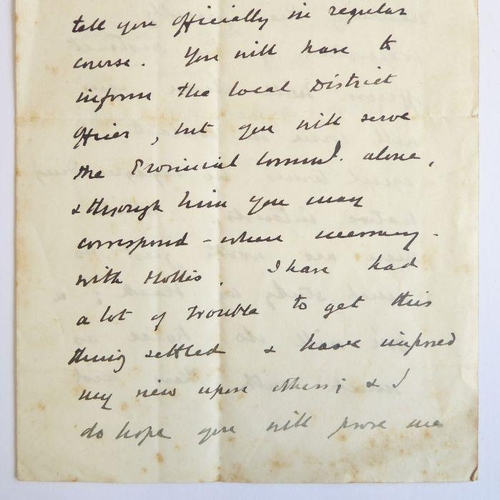 tell you officially in regular
course. You will have to
inform the local District
Officer, but you will serve
the Provincial Commnr. alone,
& through him you may
correspond - where necessary -
with Hollis. I have had
a lot of trouble to get this
thing settled & have imposed
my view upon others; & I
do hope you will prove me